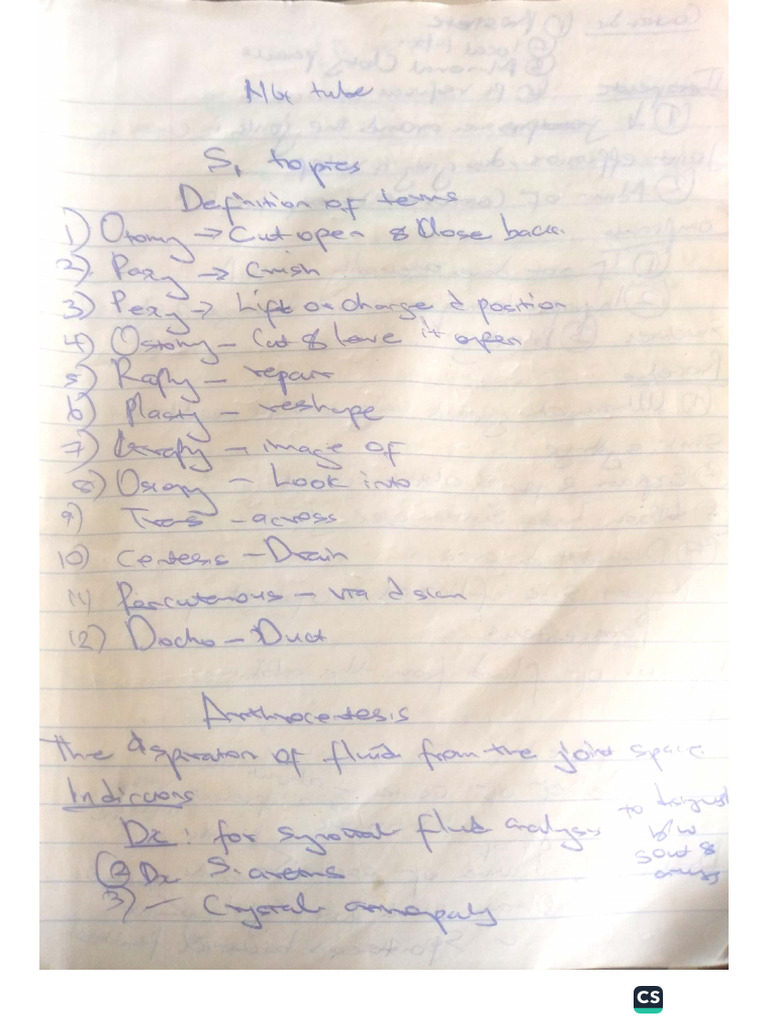 NG tube
S, topics
Definition of terms
1) Otomy → Cut open & Close back.
2) Paxy → Crush
3) Pexy → Lift or change d position
4) Ostomy – Cut & leave it open
5) Rapfy – repair
6) Plasty – reshape
7) Grapfy – image of
8) Oscopy – Look into
9) Trans – across
10) Centesis – Drain
11) Percutenous – via d skin
12) Docho – Duct
Arthrocentesis
The aspiration of fluid from the joint space
Indications
Dx: for synovial fluid analysis to
b/w
② Dx S. &
3) – Crystal
CS